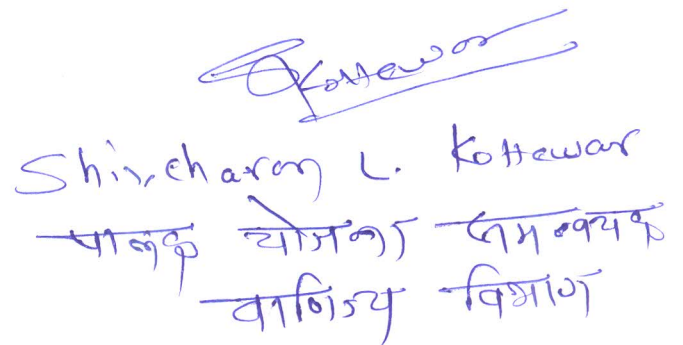 Kottewar
Shivcharan L. Kottewar
पालक योजना समन्वयक
वाणिज्य विभाग